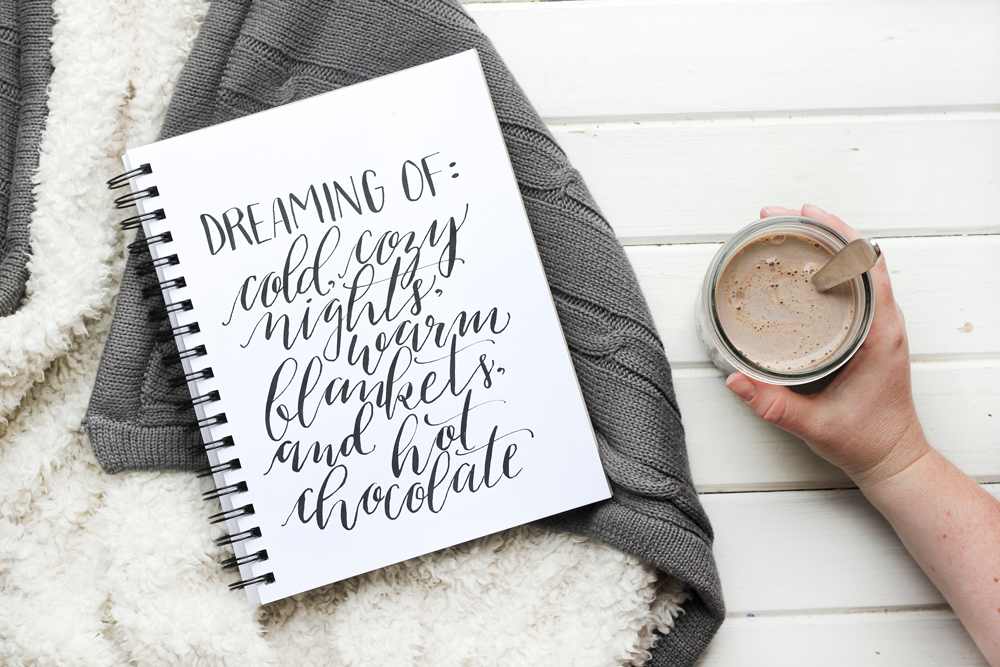 DREAMING OF:
cold, cozy
nights,
warm
blankets,
and hot
chocolate